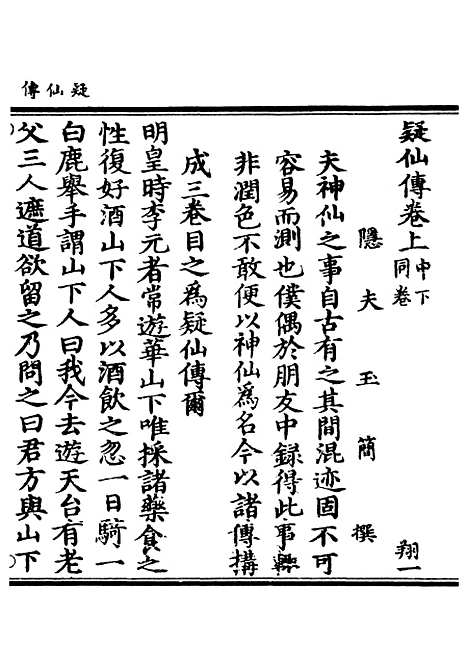 疑仙傳
疑仙傳卷上中下同卷 翔一
隱夫玉簡撰
夫神仙之事自古有之其間混迹固不可
容易而測也僕偶於朋友中錄得此事輒
非潤色不敢便以神仙爲名今以諸傳搆
成三卷目之爲疑仙傳爾
明皇時李元者常遊華山下唯採諸藥食之
性復好酒山下人多以酒飲之忽一日騎一
白鹿舉手謂山下人曰我今去遊天台有老
父三人遮道欲留之乃問之曰君方與山下